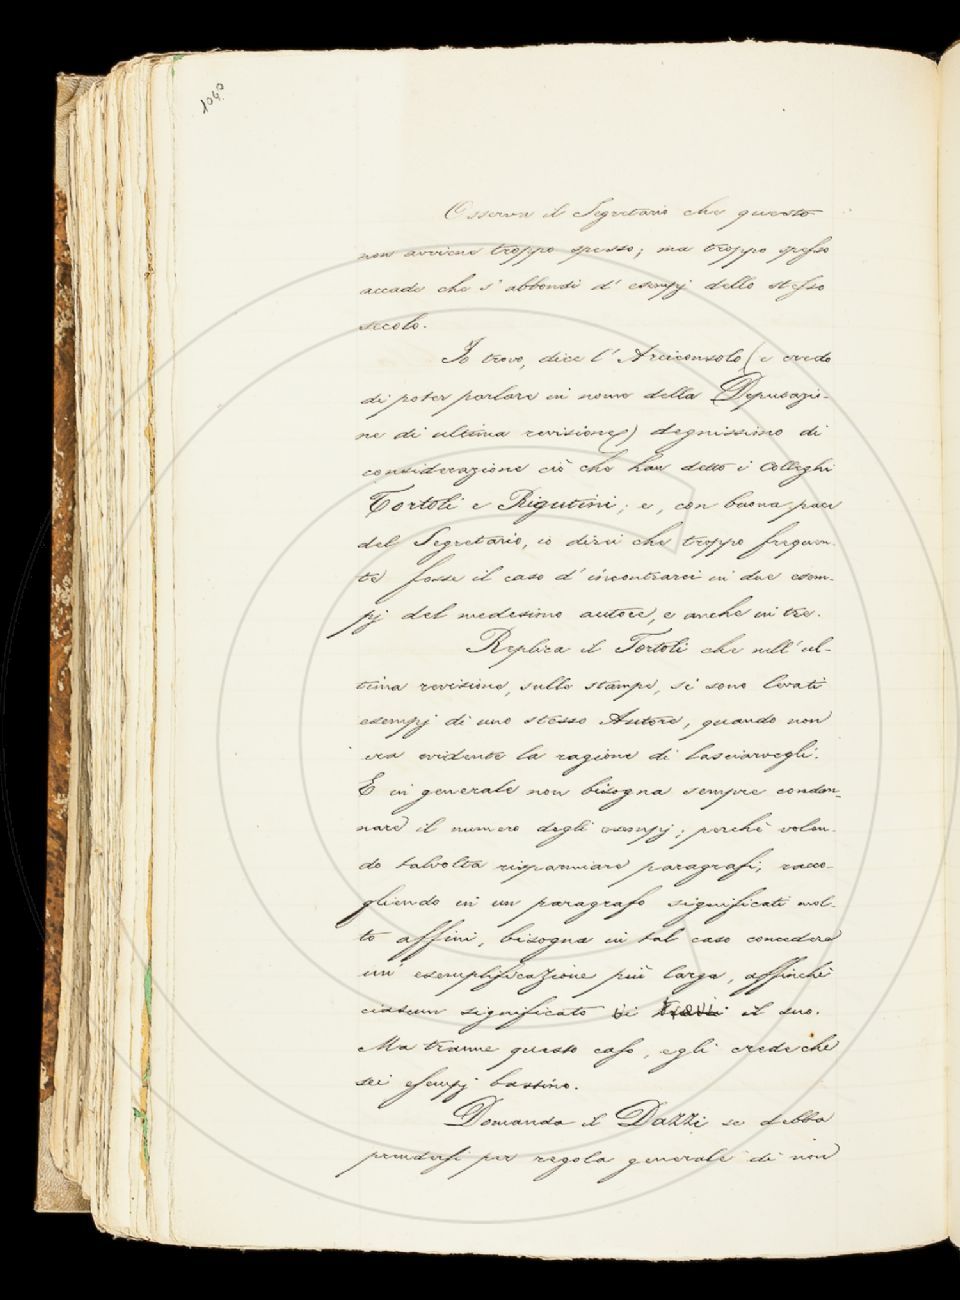 1040
Osserva il Segretario che questo
non avviene troppo spesso; ma troppo spesso
accade che s'abbondi d'esempj dello stesso
secolo.
Io trovo, dice l'Arciconsolo (e credo
di poter parlare in nome della Deputazio-
ne di ultima revisione) degnissimo di
considerazione ciò che han detto i Colleghi
Tortoli e Rigutini; e, con buona pace
del Segretario, io direi che troppo frequen-
te fosse il caso d'incontrarci in due esem-
pj del medesimo autore, e anche in tre.
Replica il Tortoli che nell'ul-
tima revisione, sulle stampe, si sono levati
esempj di uno stesso Autore, quando non
era evidente la ragione di lasciarvegli.
E in generale non bisogna sempre condan-
nare il numero degli esempj; perchè volen-
do talvolta risparmiare paragrafi, racco-
gliendo in un paragrafo significati mol-
to affini, bisogna in tal caso concedere
un'esemplificazione più larga, affinchè
ciascun significato vi trovi il suo.
Ma tranne questo caso, egli crede che
sei esempj bastino.
Domanda il Dazzi se debba
prendersi per regola generale di non